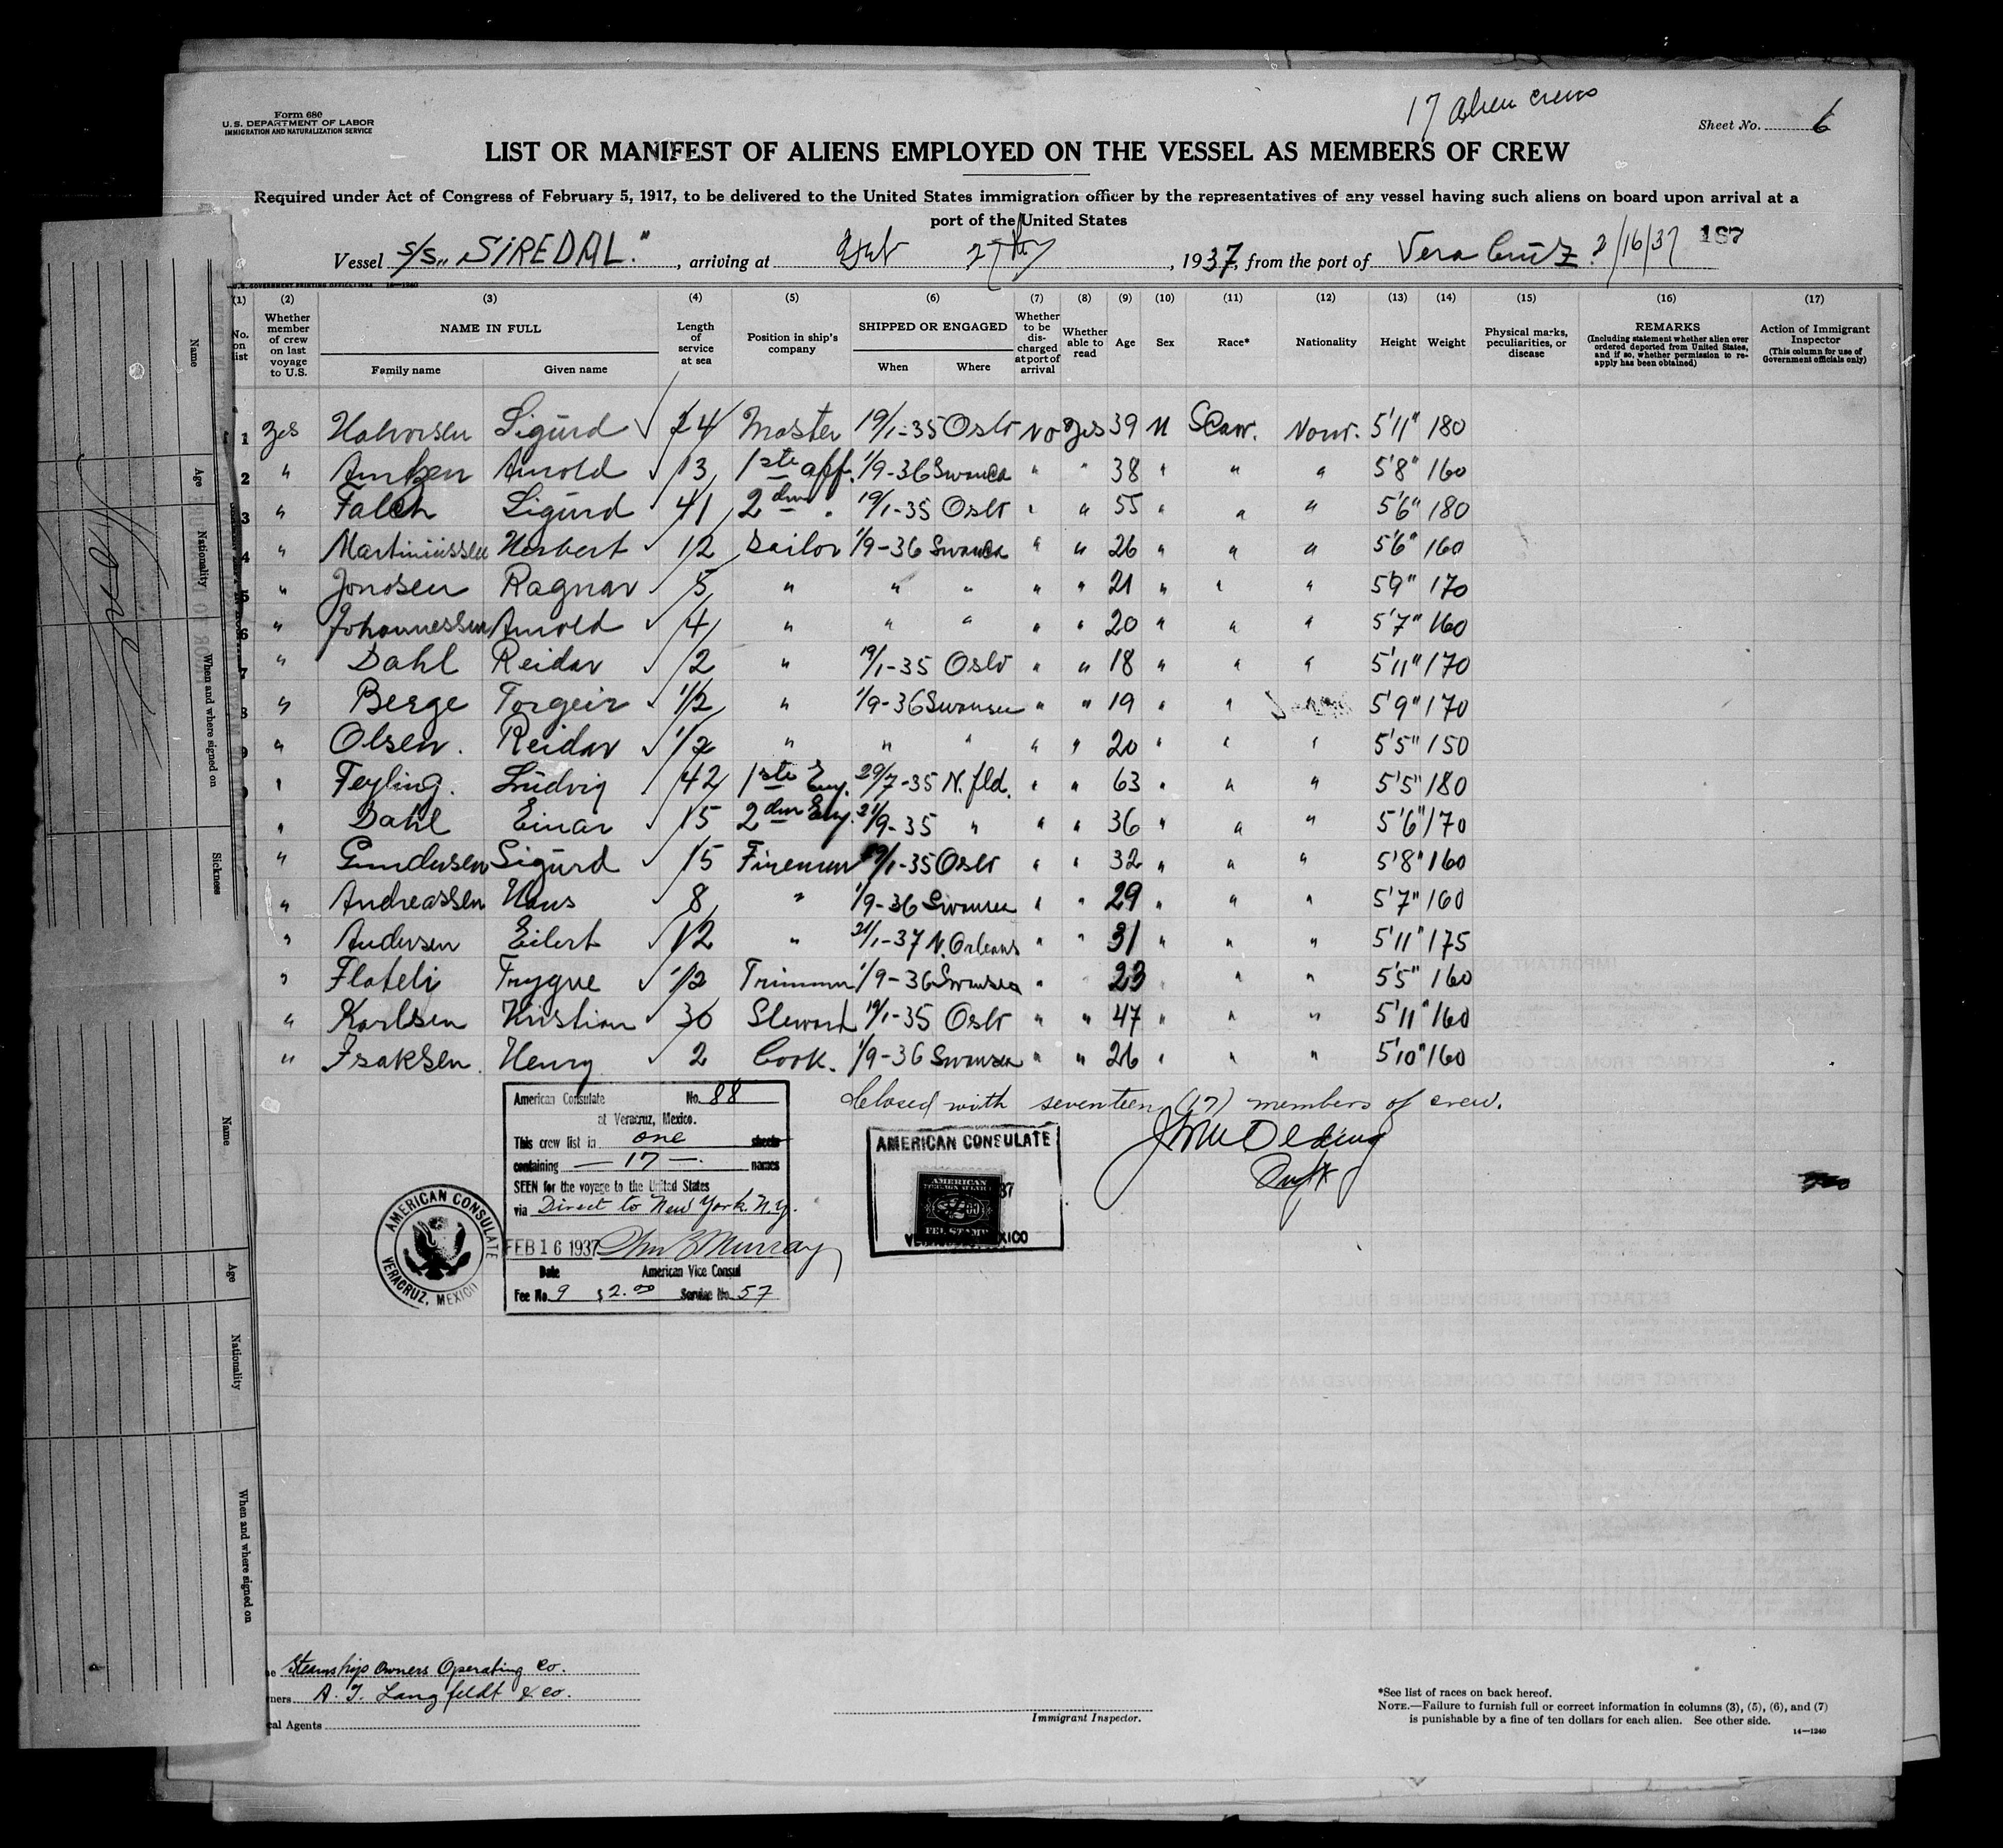 17 alien crews
Form 680
U.S. DEPARTMENT OF LABOR
IMMIGRATION AND NATURALIZATION SERVICE
Sheet No. 6
LIST OR MANIFEST OF ALIENS EMPLOYED ON THE VESSEL AS MEMBERS OF CREW
Required under Act of Congress of February 5, 1917, to be delivered to the United States immigration officer by the representatives of any vessel having such aliens on board upon arrival at a
port of the United States
Vessel S/S „SIREDAL." , arriving at 27th , 1937, from the port of Vera Cruz. 2/16/37 187
U.S. GOVERNMENT PRINTING OFFICE: 1934 14—1240
(1) (2) (3) (4) (5) (6) (7) (8) (9) (10) (11) (12) (13) (14) (15) (16) (17)
No. on list Whether member of crew on last voyage to U.S. NAME IN FULL Family name Given name Length of service at sea Position in ship's company SHIPPED OR ENGAGED When Where Whether to be discharged at port of arrival Whether able to read Age Sex Race* Nationality Height Weight Physical marks, peculiarities, or disease REMARKS (Including statement whether alien ever ordered deported from United States, and if so, whether permission to reapply has been obtained) Action of Immigrant Inspector (This column for use of Government officials only)
1 Yes Halvorsen Sigurd ✓ 24 Master 19/1-35 Oslo No Yes 39 M Scan. Norw. 5'11" 180
2 " Arntzen Arnold ✓ 13 1ste off. 1/9-36 Swansea " " 38 " " " 5'8" 160
3 " Falch Sigurd ✓ 41 2den " 19/1-35 Oslo " " 55 " " " 5'6" 180
4 " Martiniussen Herbert ✓ 12 Sailor 1/9-36 Swansea " " 26 " " " 5'6" 160
5 " Jonosen Ragnar ✓ 5 " " " " " 21 " " " 5'9" 170
6 " Johannessen Arnold ✓ 4 " " " " " 20 " " " 5'7" 160
7 " Dahl Reidar ✓ 2 " 19/1-35 Oslo " " 18 " " " 5'11" 170
8 " Berge Torgeir ✓ 1/2 " 1/9-36 Swansea " " 19 " " 5'9" 170
9 " Olsen. Reidar ✓ 1/2 " " " " " 20 " " " 5'5" 150
" Feyling. Ludvig ✓ 42 1ste Eng. 29/7-35 N.fld. " " 63 " " " 5'5" 180
" Dahl Einar ✓ 15 2den Eng. 21/9-35 " " " 36 " " " 5'6" 170
" Gundersen Sigurd ✓ 15 Fireman 19/1-35 Oslo " " 32 " " " 5'8" 160
" Andreassen Hans ✓ 8 " 1/9-36 Swansea " " 29 " " " 5'7" 160
" Andersen Eilert ✓ 12 " 21/1-37 N. Orleans " " 31 " " " 5'11" 175
" Flateli Trygve ✓ 1/2 Trimmer 1/9-36 Swansea " 23 " " 5'5" 160
" Karlsen Kristian ✓ 30 Steward 19/1-35 Oslo " " 47 " " " 5'11" 160
" Isaksen. Henry ✓ 2 Cook. 1/9-36 Swansea " " 26 " " " 5'10" 160
Closed with seventeen (17) members of crew.
American Consulate No. 88
at Veracruz, Mexico.
This crew list in one sheets
containing — 17 — names
SEEN for the voyage to the United States
via Direct to New York. N.Y.
FEB 16 1937 Murray
Date American Vice Consul
Fee No. 9 $2.00 Service No. 57
AMERICAN CONSULATE
VERACRUZ, MEXICO
AMERICAN CONSULATE
AMERICAN
FOREIGN SERVICE
$2.00
FEE STAMP
Steamship Owners Operating Co.
A. T. Langfeldt & Co.
Agents
Immigrant Inspector.
*See list of races on back hereof.
NOTE.—Failure to furnish full or correct information in columns (3), (5), (6), and (7)
is punishable by a fine of ten dollars for each alien. See other side.
14—1240
Name
Age
Nationality
When and where signed on
Sickness
Name
Age
Nationality
When and where signed on